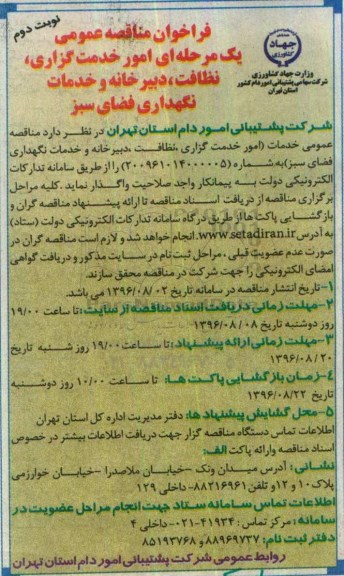 نوبت دوم
فراخوان مناقصه عمومی
یک مرحله ای امور خدمت گزاری،
نظافت، دبیرخانه و خدمات
نگهداری فضای سبز
جهاد
کشاورزی
وزارت جهاد کشاورزی
شرکت سهامی پشتیبانی امور دام کشور
استان تهران
شرکت پشتیبانی امور دام استان تهران در نظر دارد مناقصه
عمومی خدمات (امور خدمت گزاری، نظافت، دبیرخانه و خدمات نگهداری
فضای سبز) به شماره (۲۰۰۹۶۱۰۱۴۰۰۰۰۰۵) را از طریق سامانه تدارکات
الکترونیکی دولت به پیمانکار واجد صلاحیت واگذار نماید. کلیه مراحل
برگزاری مناقصه از دریافت اسناد مناقصه تا ارائه پیشنهاد مناقصه گران و
بازگشایی پاکت ها از طریق درگاه سامانه تدارکات الکترونیکی دولت (ستاد)
به آدرس www.setadiran.ir انجام خواهد شد و لازم است مناقصه گران در
صورت عدم عضویت قبلی، مراحل ثبت نام در سایت مذکور و دریافت گواهی
امضای الکترونیکی را جهت شرکت در مناقصه محقق سازند.
۱-تاریخ انتشار مناقصه در سامانه تاریخ ۱۳۹۶/۰۸/۰۲ می باشد.
۲-مهلت زمانی دریافت اسناد مناقصه از سایت: تا ساعت ۱۹/۰۰
روز دوشنبه تاریخ ۱۳۹۶/۰۸/۰۸
۳-مهلت زمانی ارائه پیشنهاد: تا ساعت ۱۹/۰۰ روز شنبه تاریخ
۱۳۹۶/۰۸/۲۰
۴-زمان بازگشایی پاکت ها: تا ساعت ۱۰/۰۰ روز دوشنبه
تاریخ ۱۳۹۶/۰۸/۲۲
۵-محل گشایش پیشنهاد ها: دفتر مدیریت اداره کل استان تهران
اطلاعات تماس دستگاه مناقصه گزار جهت دریافت اطلاعات بیشتر در خصوص
اسناد مناقصه وارائه پاکت الف:
نشانی: آدرس میدان ونک -خیابان ملاصدرا -خیابان خوارزمی
پلاک ۱۰ و ۱۲ و تلفن ۸۸۲۱۶۹۶۱- داخلی ۱۲۹
اطلاعات تماس سامانه ستاد جهت انجام مراحل عضویت در
سامانه: مرکز تماس: ۴۱۹۳۴-۰۲۱- داخلی ۴
دفتر ثبت نام: ۸۸۹۶۹۷۳۷ و ۸۵۱۹۳۷۶۸
روابط عمومی شرکت پشتیبانی امور دام استان تهران